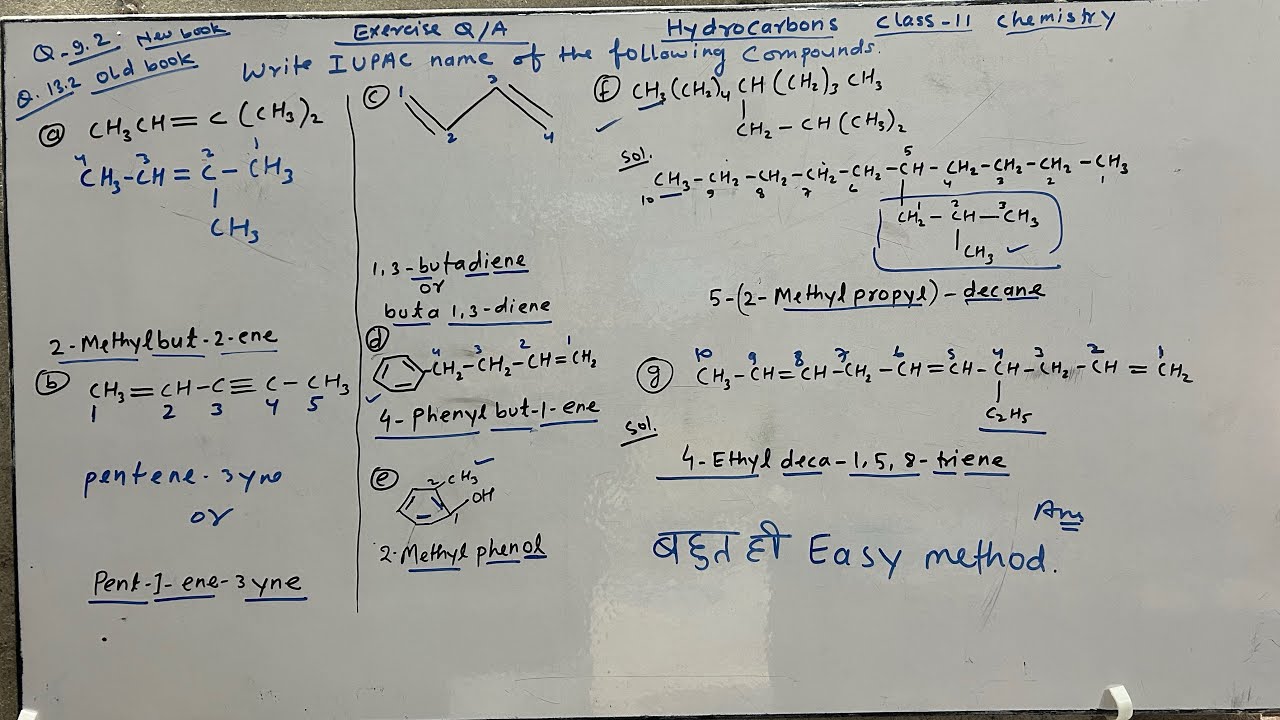 Q-9.2 New book
Q. 13.2 old book
Exercise Q/A
Hydrocarbons class-11 chemistry
Write IUPAC name of the following Compounds.
(a) CH3CH=C(CH3)2
4 3 2 1
CH3-CH=C-CH3
CH3
2-Methylbut-2-ene
(b) CH3=CH-C≡C-CH3
1 2 3 4 5
pentene-3yne
or
Pent-1-ene-3yne
(c) 1 2 3 4
1,3-butadiene
or
buta 1,3-diene
(d) 4 3 2 1
CH2-CH2-CH=CH2
4-Phenyl but-1-ene
(e) 2 CH3
OH
1
2-Methyl phenol
(f) CH3(CH2)4 CH(CH2)3 CH3
CH2-CH(CH3)2
Sol.
5
CH3-CH2-CH2-CH2-CH2-CH-CH2-CH2-CH2-CH3
10 9 8 7 6 4 3 2 1
1 2 3
CH2-CH-CH3
CH3
5-(2-Methylpropyl)-decane
(g) 10 9 8 7 6 5 4 3 2 1
CH3-CH=CH-CH2-CH=CH-CH-CH2-CH=CH2
C2H5
Sol.
4-Ethyl deca-1,5,8-triene
Ans
बहुत ही Easy method.